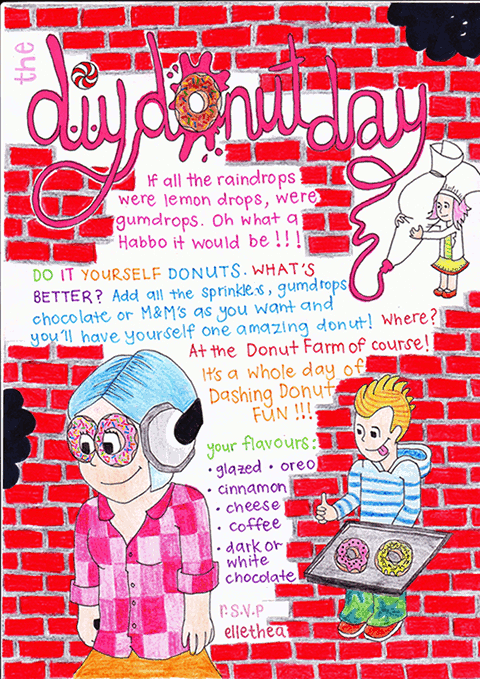 the
diy donut day
If all the raindrops
were lemon drops, were
gumdrops. Oh what a
Habbo it would be !!!
DO IT YOURSELF DONUTS. WHAT'S
BETTER? Add all the sprinkles, gumdrops
chocolate or M&M's as you want and
you'll have yourself one amazing donut! Where?
At the Donut Farm of course!
It's a whole day of
Dashing Donut
FUN !!!
your flavours:
• glazed • oreo
• cinnamon
• cheese
• coffee
• dark or
white
chocolate
r.s.v.p
ellethea